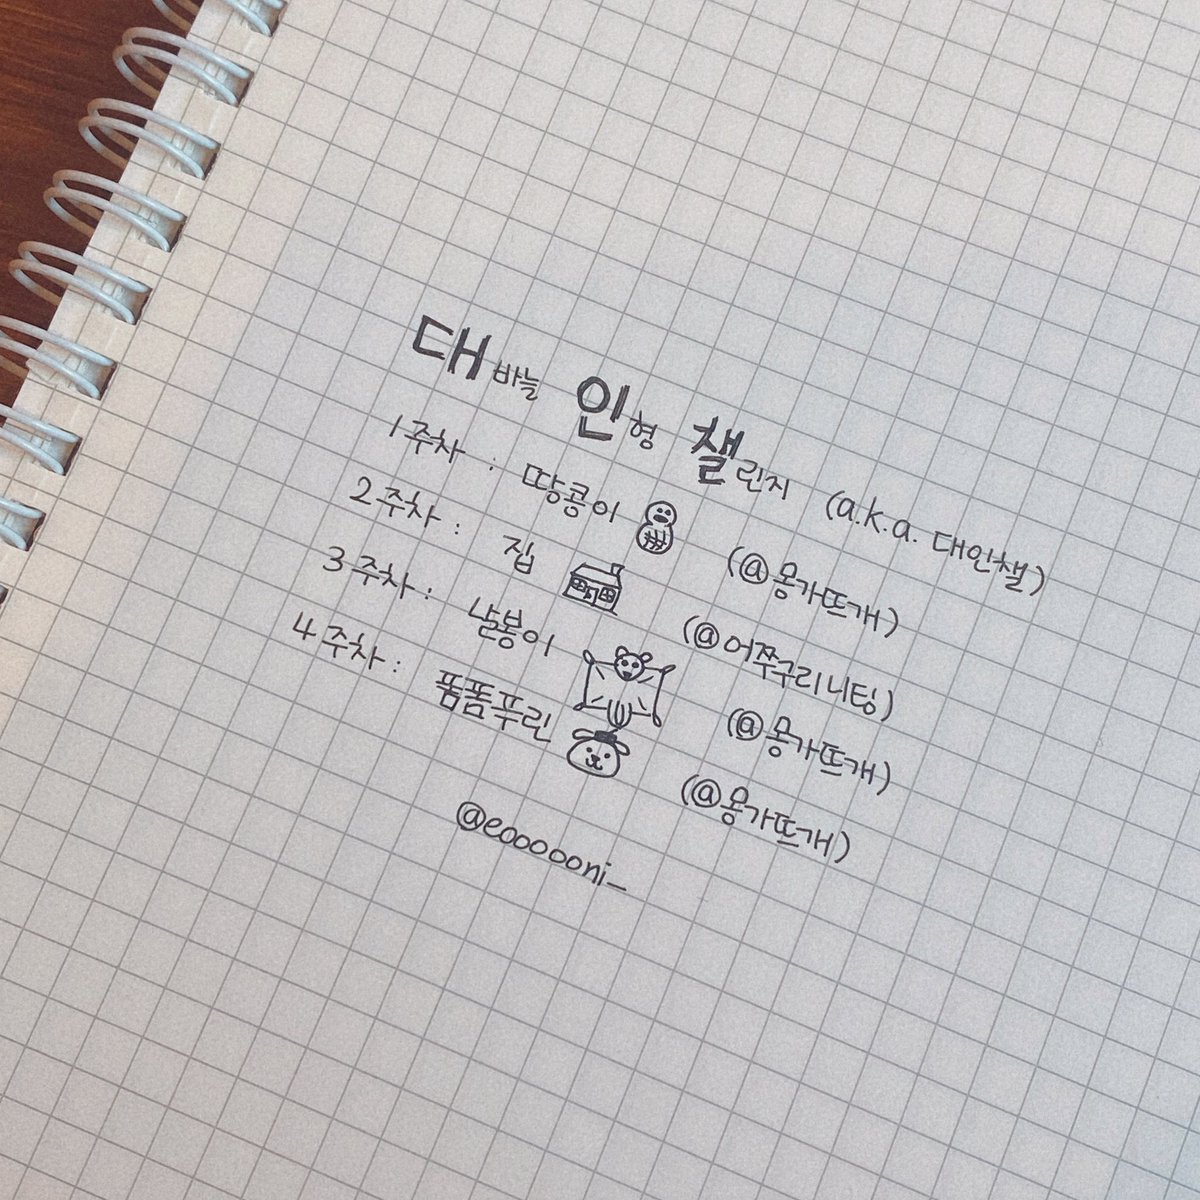 대바늘 인형 챌린지 (a.k.a. 대인챌)
1주차 : 땅콩이 (@몽가뜨개)
2주차 : 집 (@어쭈구리니팅)
3주차 : 날봉이 (@몽가뜨개)
4주차 : 폼폼푸린 (@몽가뜨개)
@eoooooni_